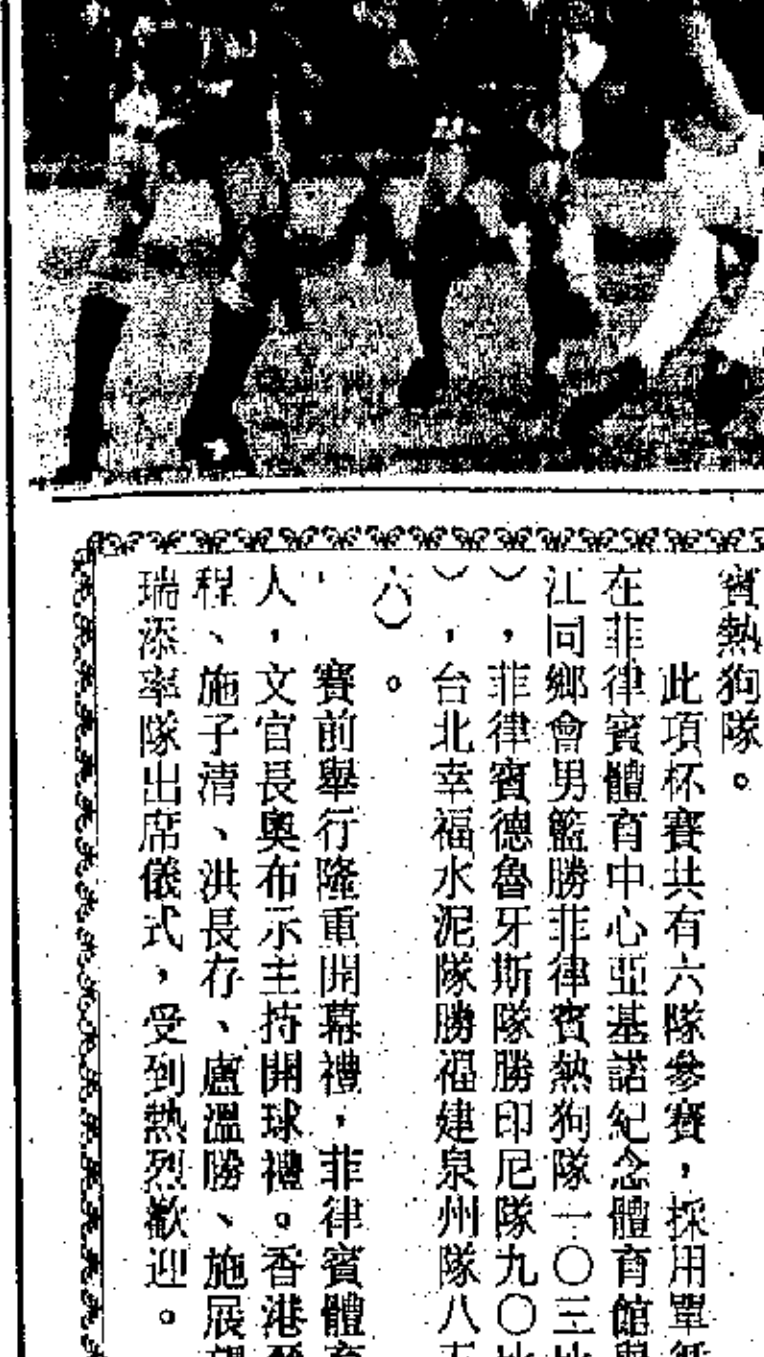 賓熱狗隊。
此項杯賽共有六隊參賽，採用單循
在菲律賓體育中心亞基諾紀念體育館舉
江同鄉會男籃勝菲律賓熱狗隊一〇三比
），菲律賓德魯牙斯隊勝印尼隊九〇比
），台北幸福水泥隊勝福建泉州隊八五
六）。
賽前舉行隆重開幕禮，菲律賓體育
人，文官長奧布示主持開球禮。香港晉
程、施子清、洪長存、盧溫勝、施展望
瑞添率隊出席儀式，受到熱烈歡迎。